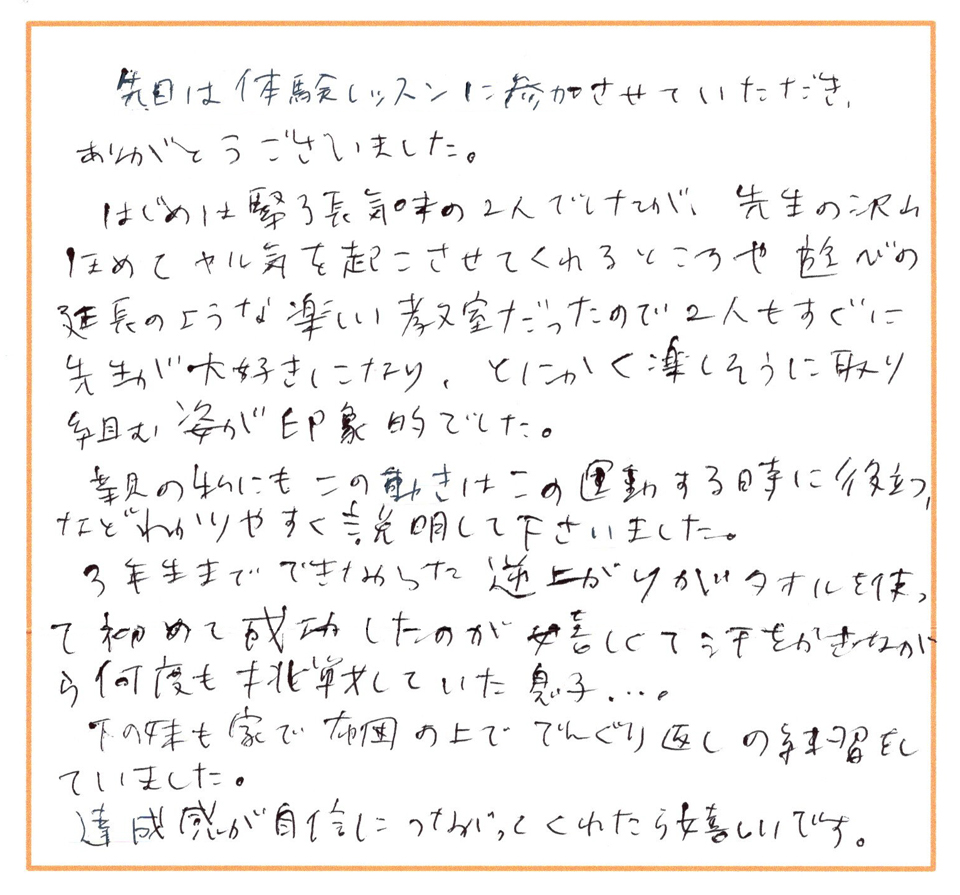 先日は体験レッスンに参加させていただき、
ありがとうございました。
はじめは緊張気味の2人でしたが、先生の沢山
ほめてヤル気を起こさせてくれるところや遊びの
延長のような楽しい教室だったので2人もすぐに
先生が大好きになり、とにかく楽しそうに取り
組む姿が印象的でした。
親の私にもこの動きはこの運動する時に役立つ、
などわかりやすく説明して下さいました。
3年生までできなかった逆上がりがタオルを使っ
て初めて成功したのが嬉しくて汗をかきなが
ら何度も挑戦していた息子…。
下の妹も家で布団の上ででんぐり返しの練習をし
ていました。
達成感が自信につながってくれたら嬉しいです。